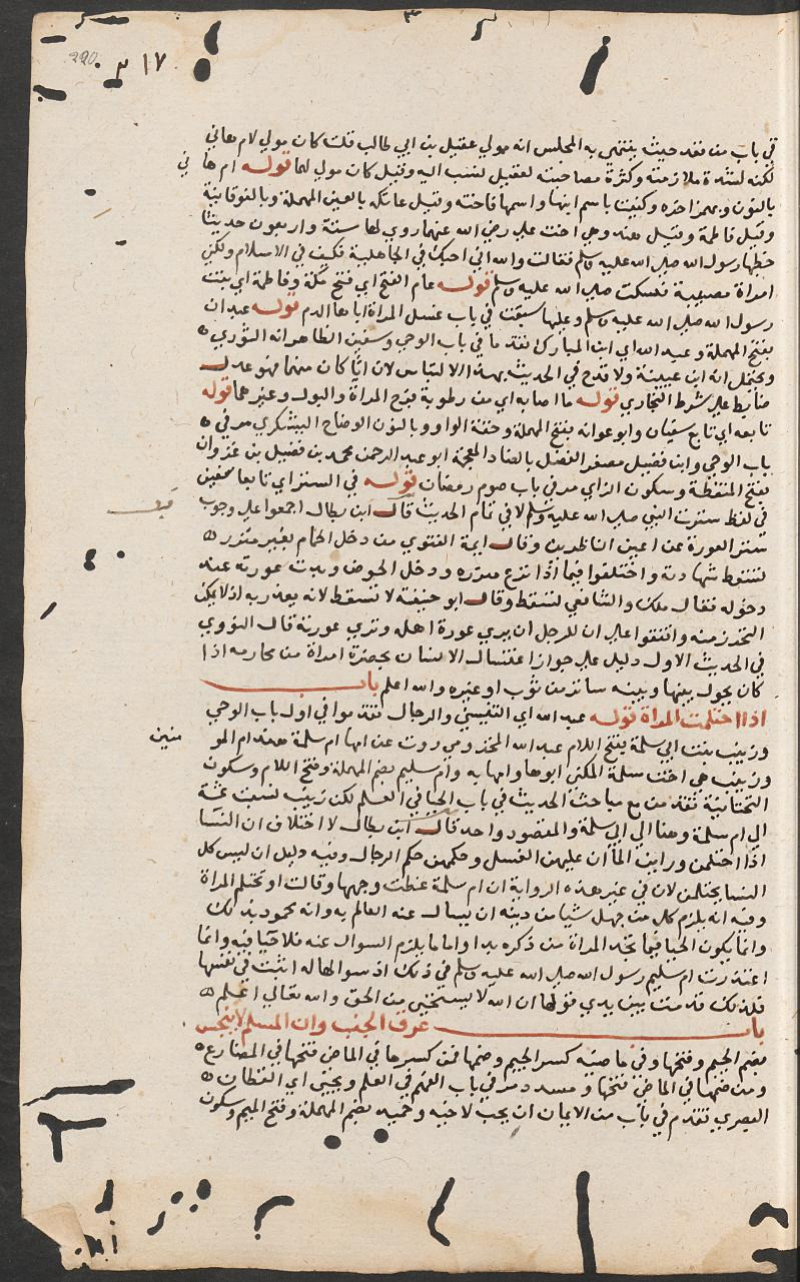 220 ٣١٧
في باب من قعد حيث ينتهي به المجلس انه مولي عقيل بن ابي طالب قلت كان مولي لام هاني
لكنه لشدة ملازمته وكثرة مصاحبته لعقيل نسب اليه وقيل كان مولي لهما قوله ام هاني
بالنون وبهمز اخره وكنيت باسم ابنها واسمها فاخته وقيل عاتكة بالعين المهملة وبالفوقانية
وقيل فاطمة وقيل هند وهي اخت علي رضي الله عنهما روي لها ستة واربعون حديثا
خطبها رسول الله صلي الله عليه وسلم فقالت والله اني احبك في الجاهلية فكيف في الاسلام ولكني
امراة مصبية فسكت صلي الله عليه وسلم قوله عام الفتح اي فتح مكة وفاطمة اي بنت
رسول الله صلي الله عليه وسلم وعليها سبقت في باب غسل المراة اباها الدم قوله عبدان
بفتح المهملة وعبد الله اي ابن المبارك تقدما في باب الوحي وسفين الظاهر انه الثوري
ويحتمل انه ابن عيينة ولا قدح في الحديث بهذا الالتباس لان ايا كان منهما فهو عدل
ضابط علي شرط البخاري قوله ما اصابه اي من رطوبة فرج المراة والبول وغيرهما قوله
تابعه اي تابع سفيان وابو عوانه بفتح المهملة وخفة الواو وبالنون الوضاح اليشكري مر في
باب الوحي وابن فضيل مصغر الفضل بالضاد المعجمة ابو عبد الرحمن محمد بن فضيل بن غزوان
بفتح المنقطة وسكون الزاي مر في باب صوم رمضان قوله في الستر اي تابعا سفين
في لفظ سترت النبي صلي الله عليه وسلم لا في تمام الحديث قال ابن بطال اجمعوا علي وجوب
ستر العورة عن اعين الناظرين وقال ايمة الفتوي من دخل الحمام بغير مئزر
تسقط شهادته واختلفوا فيما اذا نزع مئزره ودخل الحوض وبدت عورته عند
دخوله فقال ملك والشافعي تسقط وقال ابو حنيفة لا تسقط لانه يعذر به اذ لا يمكن
التحرز منه واتفقوا علي ان للرجل ان يري عورة اهله وتري عورته قال النووي
في الحديث الاول دليل علي جواز اغتسال الانسان بحضرة امراة من محارمه اذا
كان يحول بينها وبينه ساتر من ثوب او غيره والله اعلم باب
اذا احتلمت المراة قوله عبد الله اي التنيسي والرجال تقدموا في اول باب الوحي
وزينب بنت ابي سلمة بفتح اللام عبد الله المخزومي روت عن امها ام سلمة هند ام المو منين
وزينب هي اخت سلمة المكني ابوها وامها به وام سليم بضم المهملة وفتح اللام وسكون
التحتانية تقدمن مع مباحث الحديث في باب الحيا في العلم لكن زينب نسبت ثمة
الي ام سلمة وهنا الي ابي سلمة والمقصود واحد قال ابن بطال لا اختلاف ان النسا
اذا احتلمن وراين الما ان عليهن الغسل وحكمهن حكم الرجال وفيه دليل ان ليس كل
النسا يحتلمن لان في غير هذه الرواية ان ام سلمة غطت وجهها وقالت او تحتلم المراة
وفيه انه يلزم كل من جهل شيا من دينه ان يسال عنه العالم به وانه محمود بذلك
وانما يكون الحيا فيما تجد المراة من ذكره بدا واما ما يلزم السوال عنه فلا حيا فيه وانما
اعتذرت ام سليم رسول الله صلي الله عليه وسلم في ذلك اذ سوالها له اثبت في نفسها
فلذلك قدمت بين يدي قولها ان الله لا يستحيي من الحق والله تعالي اعلم
باب عرق الجنب وان المسلم لا ينجس
بضم الجيم وفتحها وفي ماضيه كسر الجيم وضمها فمن كسرها في الماضي فتحها في المضارع
ومن ضمها في الماضي فتحها و مسدد مر في باب الفهم في العلم ويحيي اي القطان
البصري تقدم في باب من الايمان ان يحب لاخيه وحميد بضم المهملة وفتح الميم وسكون